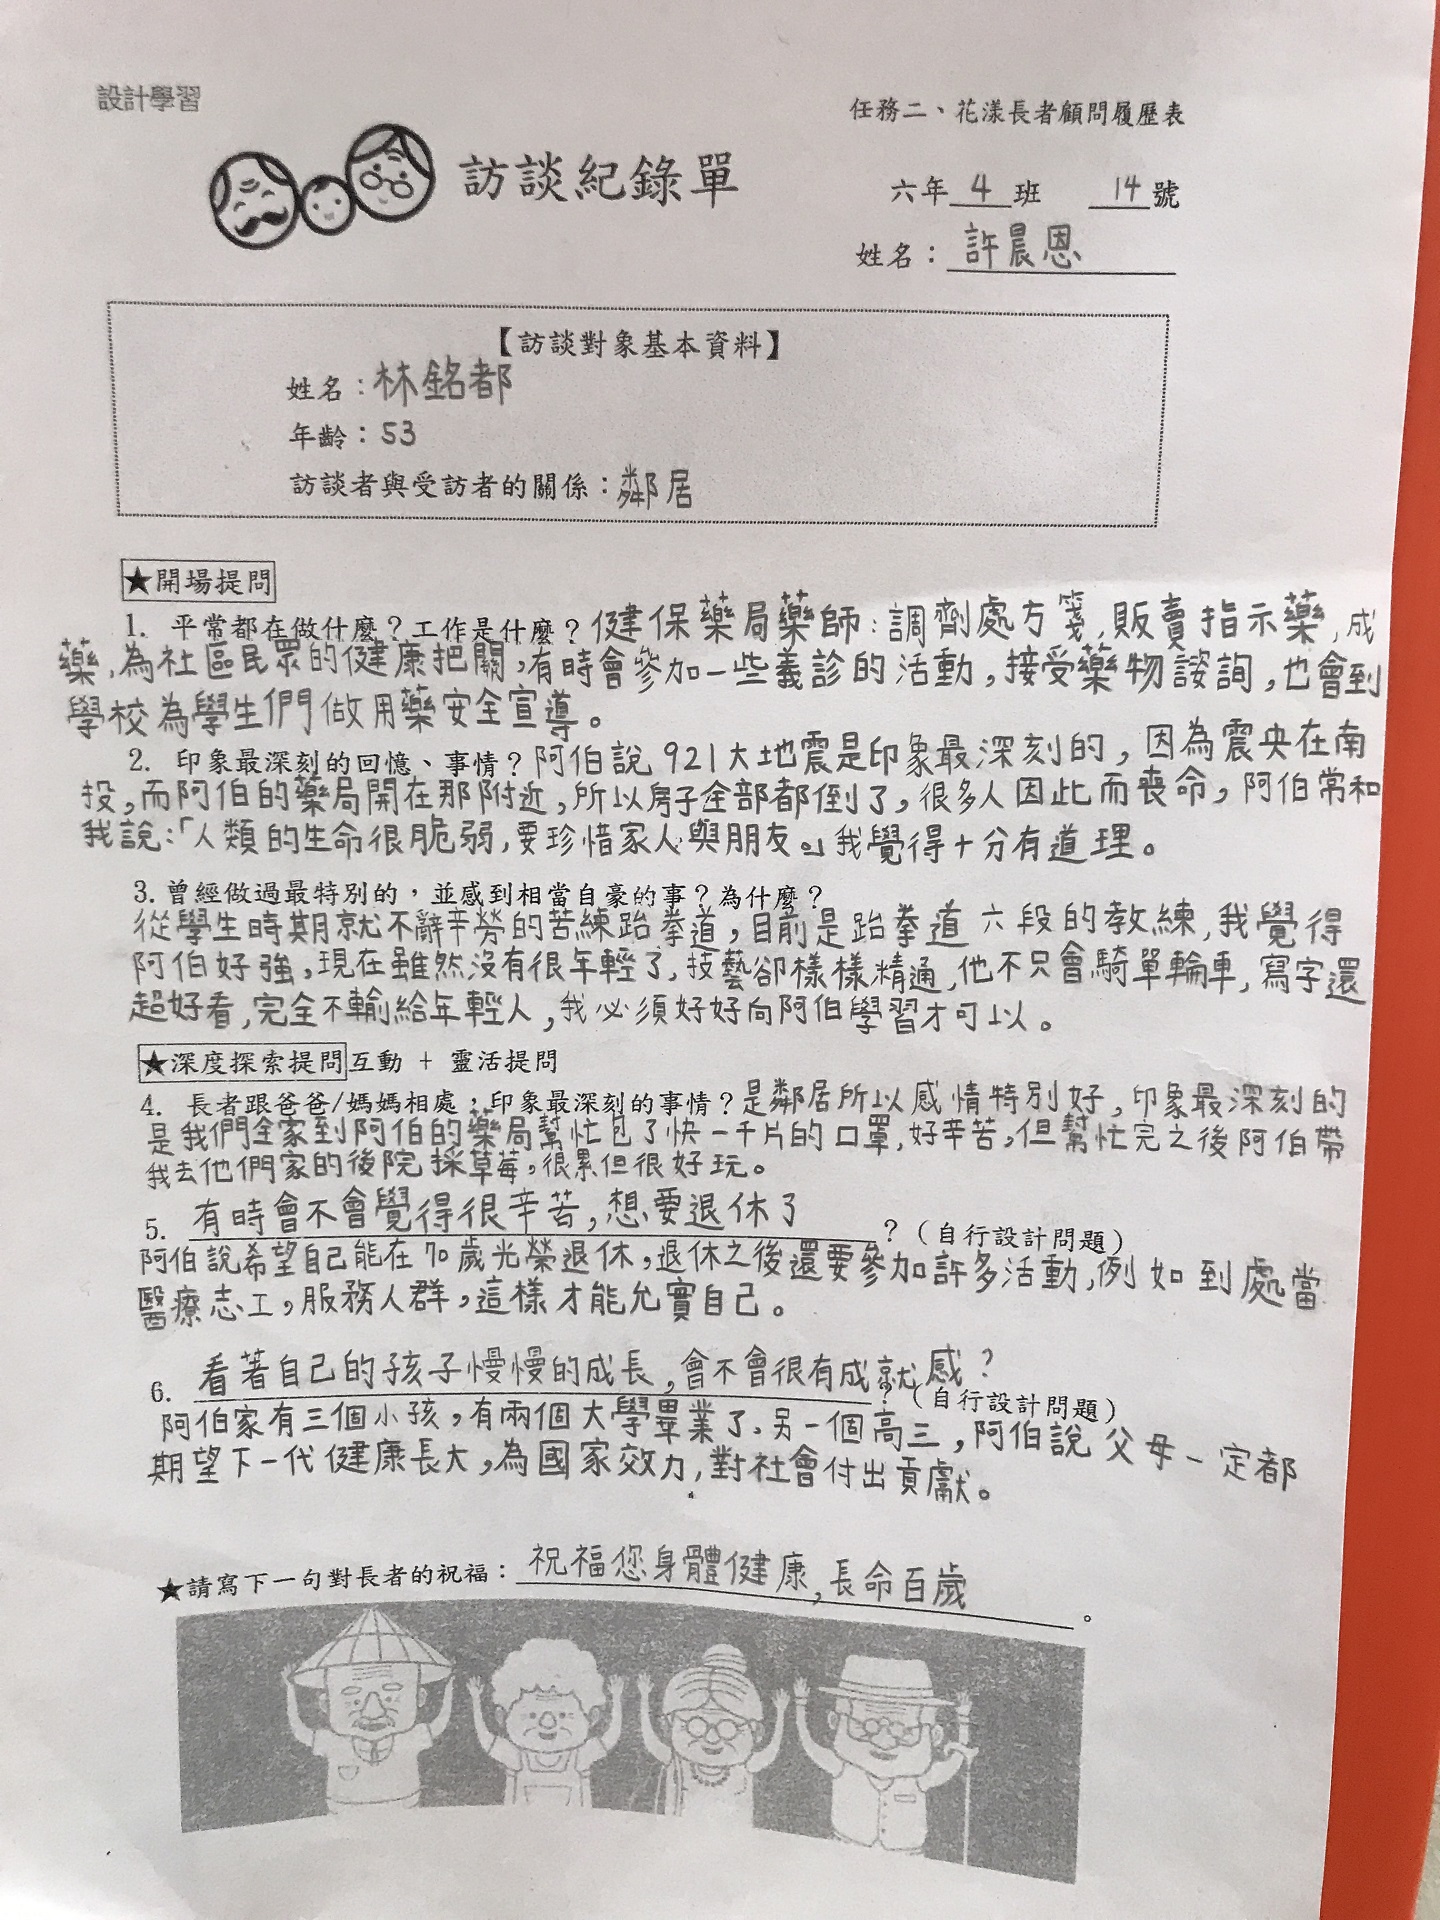 設計學習
任務二、花漾長者顧問履歷表
訪談紀錄單
六年 4 班 14 號
姓名：許晨恩
【訪談對象基本資料】
姓名：林銘都
年齡：53
訪談者與受訪者的關係：鄰居
★開場提問
1. 平常都在做什麼？工作是什麼？健保藥局藥師：調劑處方箋，販賣指示藥，成
藥，為社區民眾的健康把關，有時會參加一些義診的活動，接受藥物諮詢，也會到
學校為學生們做用藥安全宣導。
2. 印象最深刻的回憶、事情？阿伯說921大地震是印象最深刻的，因為震央在南
投，而阿伯的藥局開在那附近，所以房子全部都倒了，很多人因此而喪命，阿伯常和
我說：「人類的生命很脆弱，要珍惜家人與朋友。」我覺得十分有道理。
3. 曾經做過最特別的，並感到相當自豪的事？為什麼？
從學生時期就不辭辛勞的苦練跆拳道，目前是跆拳道六段的教練，我覺得
阿伯好強，現在雖然沒有很年輕了，技藝卻樣樣精通，他不只會騎單輪車，寫字還
超好看，完全不輸給年輕人，我必須好好向阿伯學習才可以。
★深度探索提問 互動 + 靈活提問
4. 長者跟爸爸/媽媽相處，印象最深刻的事情？是鄰居所以感情特別好，印象最深刻的
是我們全家到阿伯的藥局幫忙包了快一千片的口罩，好辛苦，但幫忙完之後阿伯帶
我去他們家的後院採草莓，很累但很好玩。
5. 有時會不會覺得很辛苦，想要退休了？（自行設計問題）
阿伯說希望自己能在70歲光榮退休，退休之後還要參加許多活動，例如到處當
醫療志工，服務人群，這樣才能允實自己。
6. 看著自己的孩子慢慢的成長，會不會很有成就感？？（自行設計問題）
阿伯家有三個小孩，有兩個大學畢業了，另一個高三，阿伯說父母一定都
期望下一代健康長大，為國家效力，對社會付出貢獻。
★請寫下一句對長者的祝福：祝福您身體健康，長命百歲。